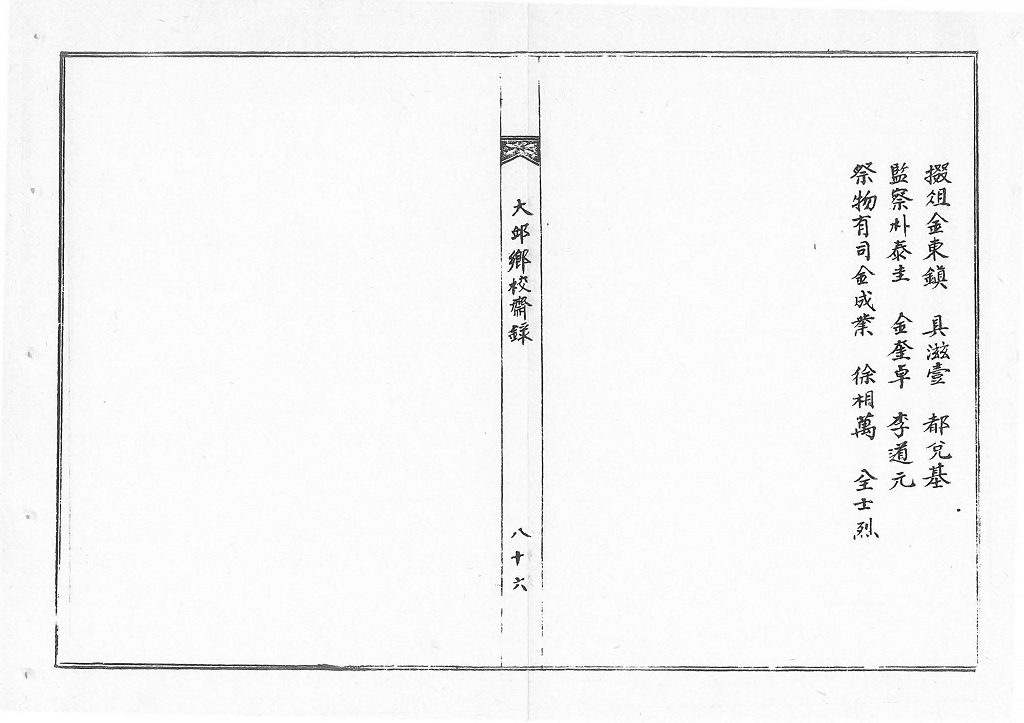 掇俎金東鎭 具滋壹 都兌基
監察朴泰圭 金奎卓 李道元
祭物有司金成業 徐相萬 全士烈
大邱鄕校齋錄
八十六